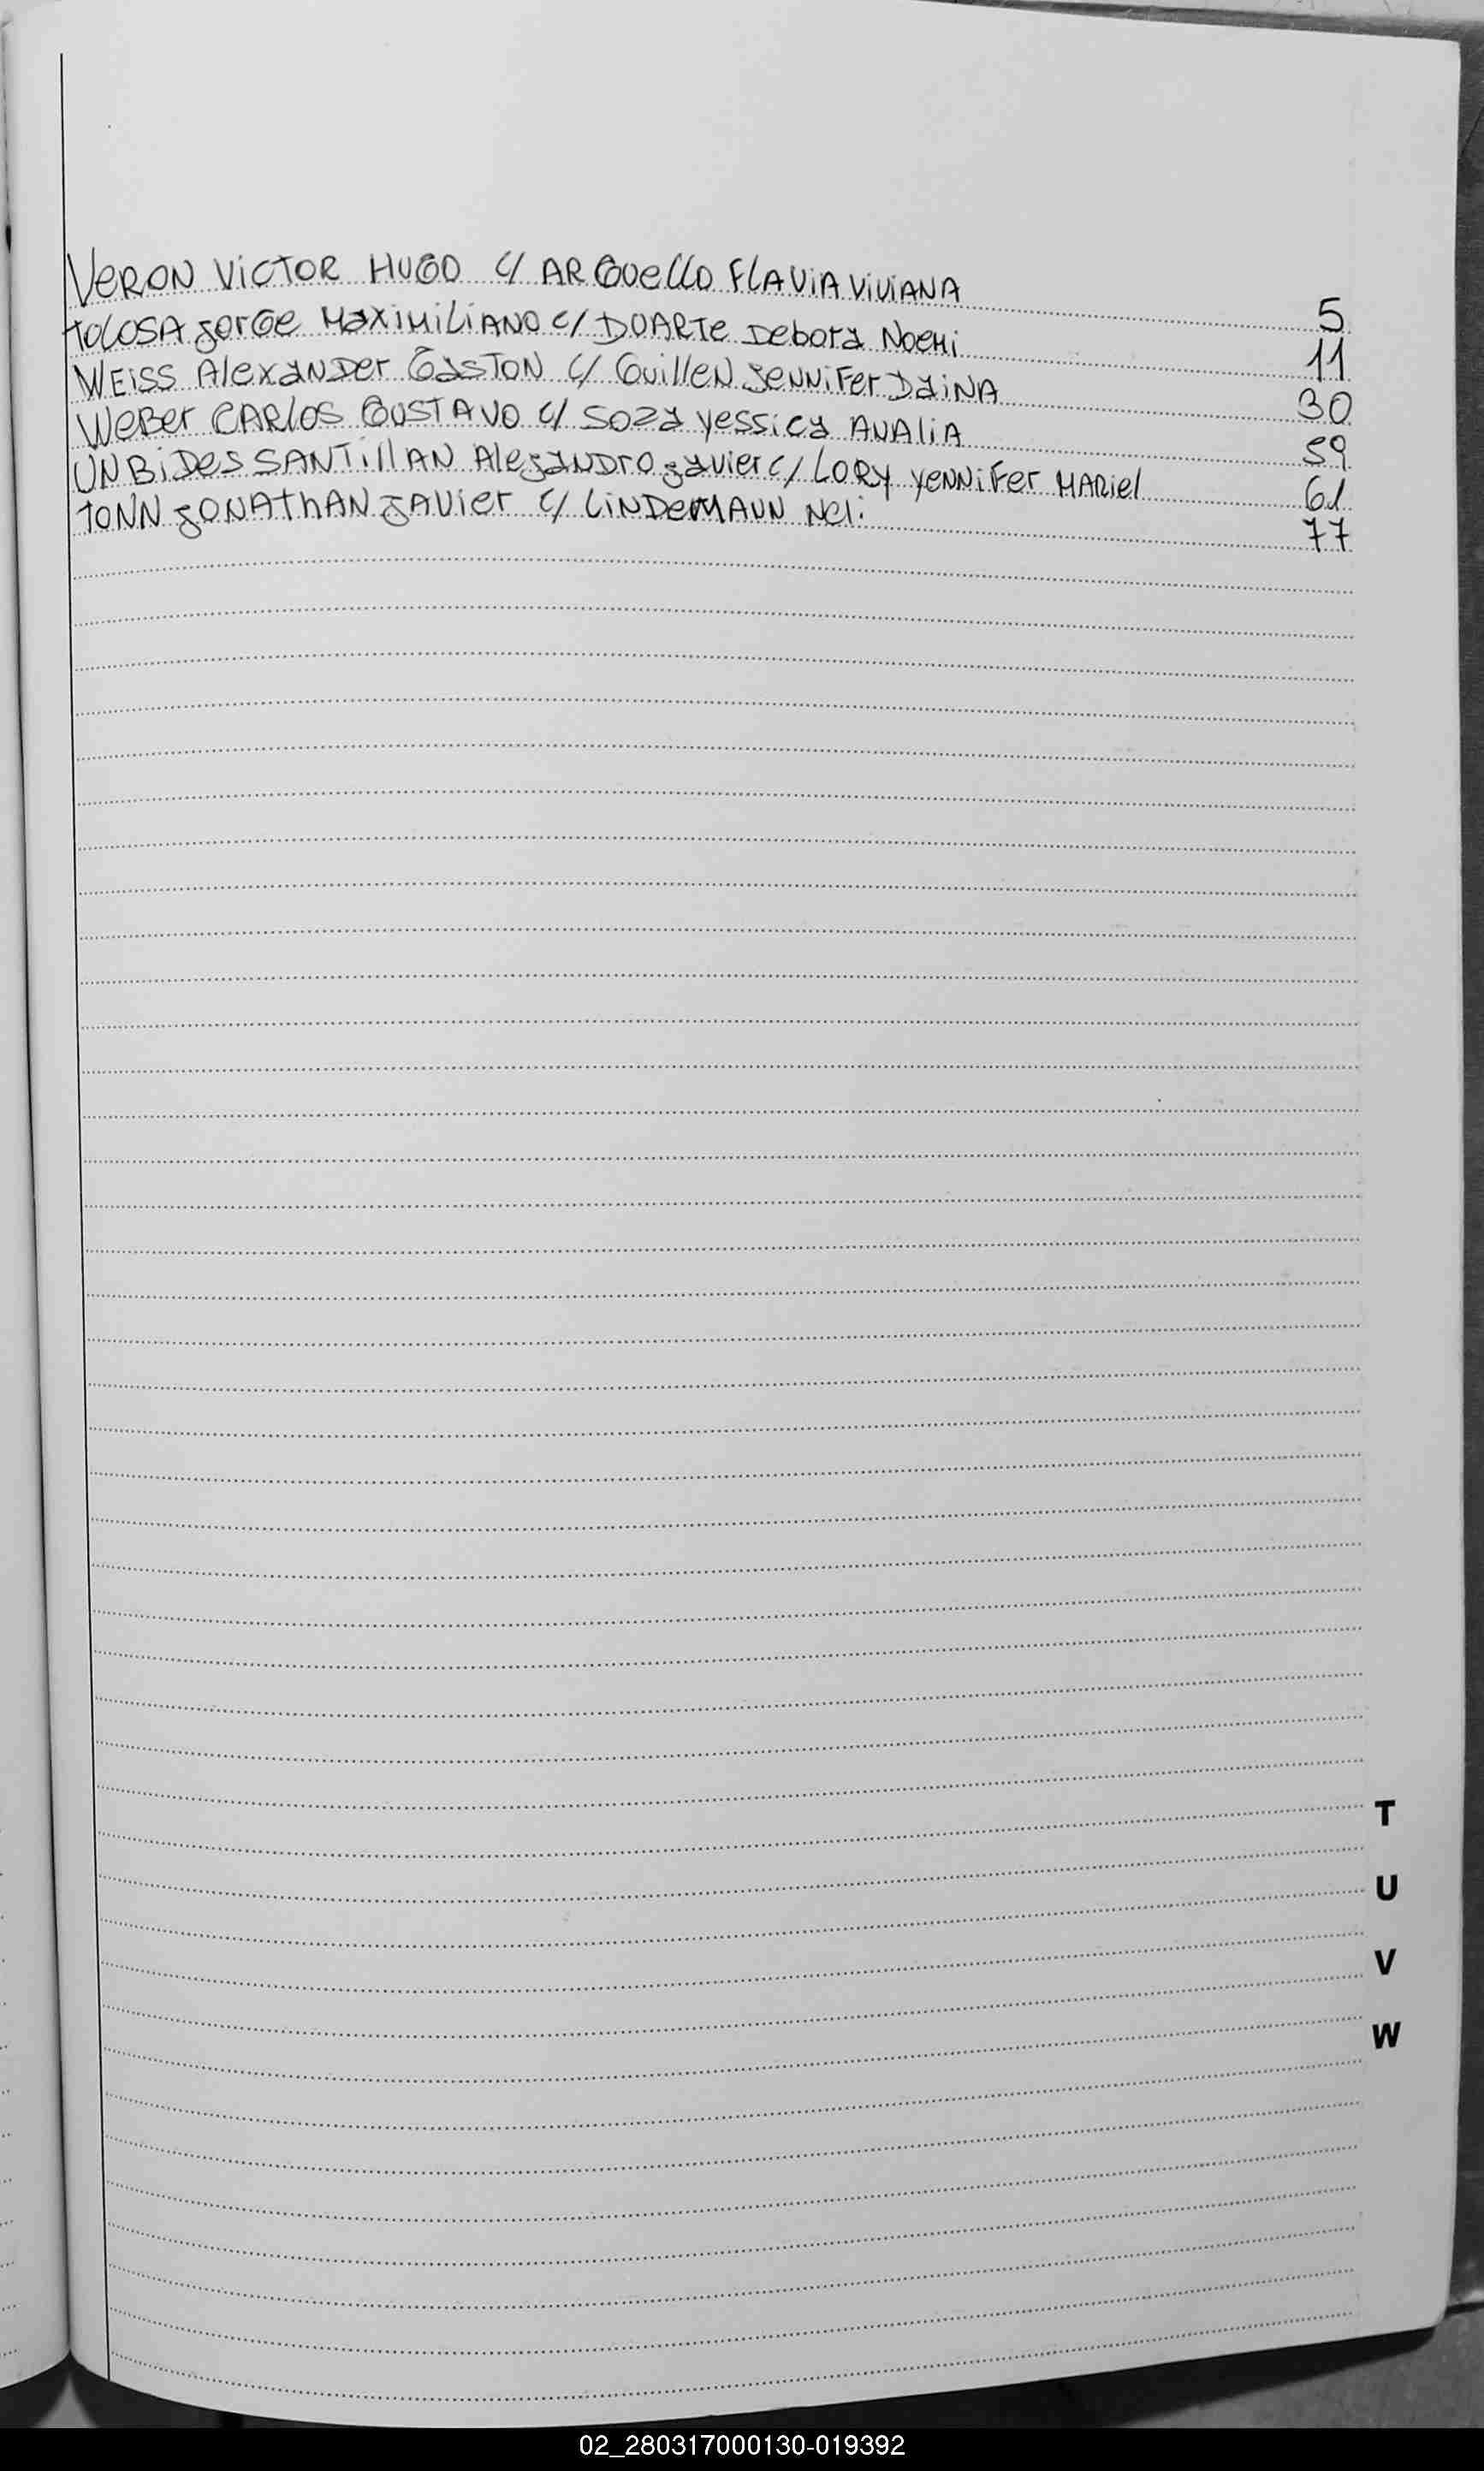 VERON VICTOR HUGO C/ ARGUELLO FLAVIA VIVIANA 5
TOLOSA JORGE MAXIMILIANO C/ DUARTE DEBORA NOEMI 11
WEISS ALEXANDER GASTON C/ GUILLEN JENNIFER DAINA 30
WEBER CARLOS GUSTAVO C/ SOZA YESSICA ANALIA 59
UNBIDES SANTILLAN ALEJANDRO JAVIER C/ LORY YENNIFER MARIEL 61
TONN JONATHAN JAVIER C/ LINDEMANN NELI 77
T
U
V
W
02_280317000130-019392